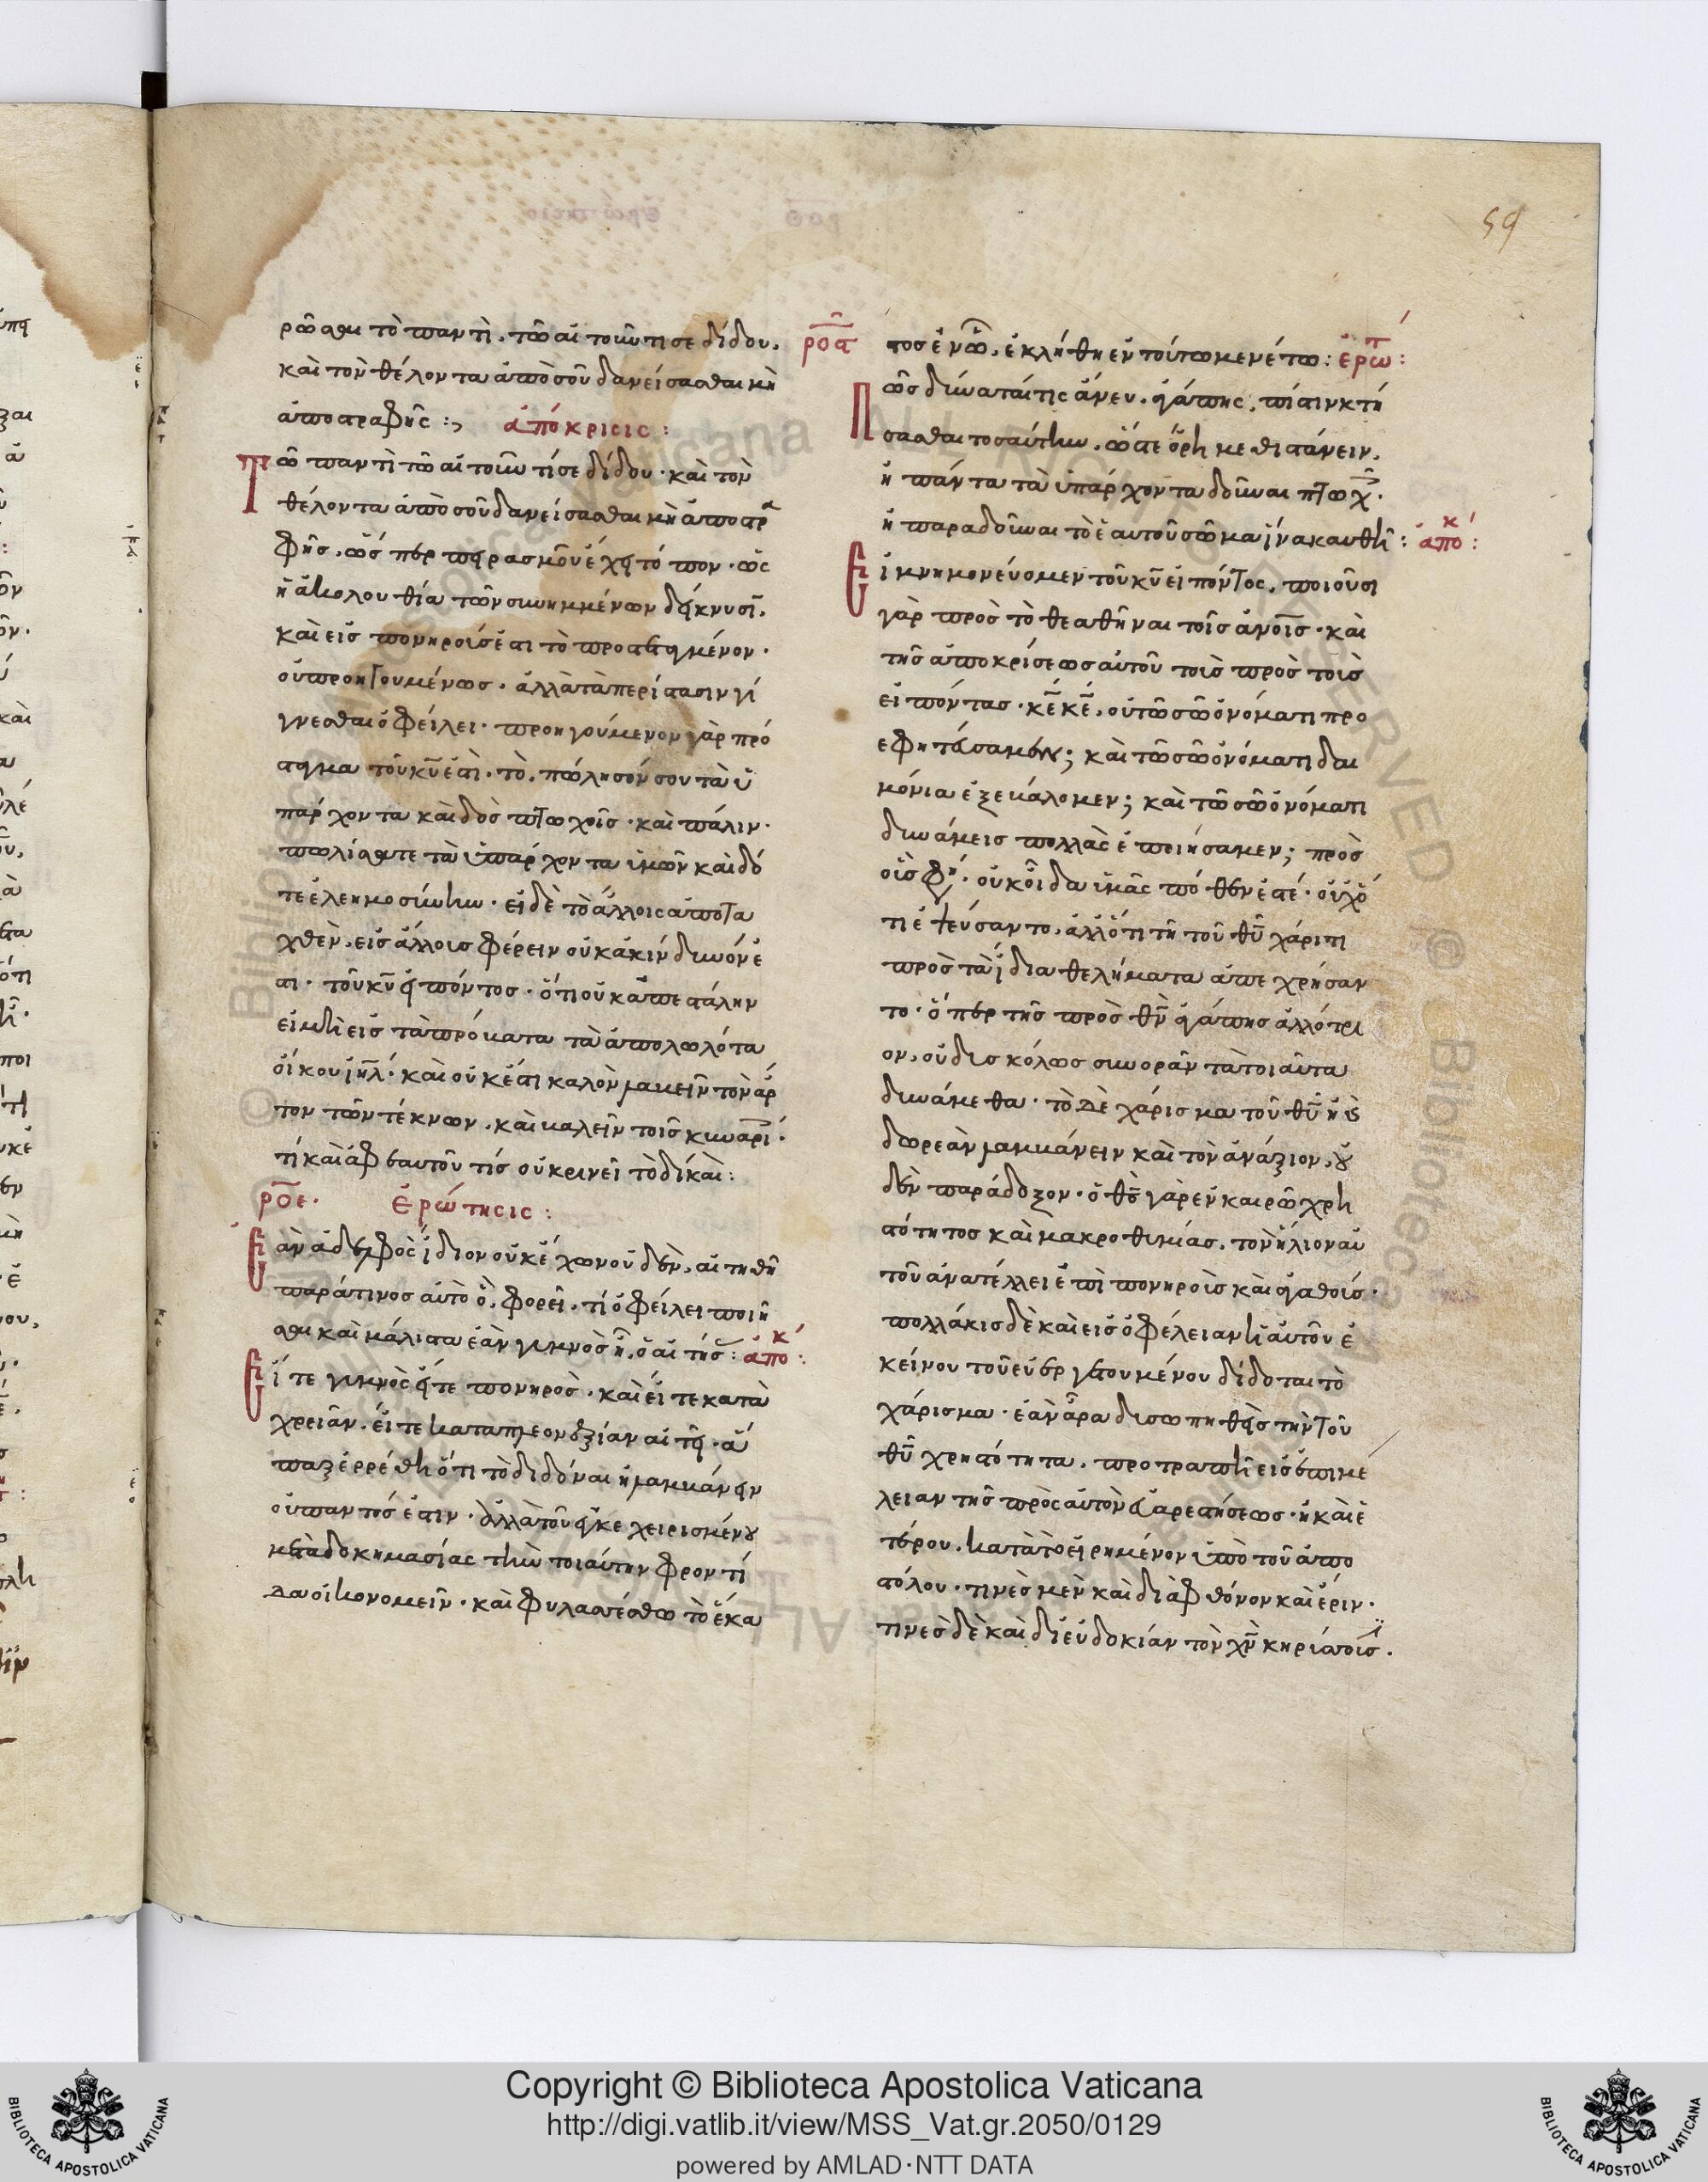 59
ρῶσαι τὸ παντὶ. τῶ αἰτοῦντι σε δίδου.
καὶ τὸν θέλοντα ἀπὸ σοῦ δανείσασθαι μὴ
ἀποστραφῆς :, ἀπόκρισις :
Τῶ παντὶ τῶ αἰτοῦντί σε δίδου · καὶ τὸν
θέλοντα ἀπὸ σοῦ δανείσασθαι μὴ ἀποστρα
φῆς. ὥσπερ πειρασμοῦ ἔχει τόπον · ὡς
ἡ ἀκολουθία τῶν συνημμένων δείκνυσι.
καὶ εἰς πονηροὶς ἔστι τὸ προστεταγμένον ·
οὐ προηγουμένως. ἀλλὰ τὰ περίστασιν γί
γνεσθαι ὀφείλει · προηγούμενον γὰρ πρό
σταγμα τοῦ κ̅υ̅ ἐστὶ · τὸ. πώλησόν σου τὰ ὑ
πάρχοντα καὶ δὸς πτωχοῖς · καὶ πάλιν ·
πωλήσατε τὰ ὑπάρχοντα ὑμῶν καὶ δό
τε ἐλεημοσύνην · εἰ δὲ τὸ ἄλλοις ἀποτα
χθὲν. εἰς ἄλλους φέρειν οὐκ ἀκίνδυνόν ἐ
στι · τοῦ κ̅υ̅ εἰπόντος · ὅτι οὐκ ἀπεστάλην
εἰ μὴ εἰς τὰ πρόβατα τὰ ἀπολωλότα
οἴκου ι̅η̅λ̅ · καὶ οὐκ ἔστι καλὸν λαβεῖν τὸν ἄρ
τον τῶν τέκνων. καὶ βαλεῖν τοῖς κυναρί ·
τί καὶ ἀφ ἑαυτοῦ τίς οὐ κρινεῖ τὸ δίκαι :
ροε · ἐρώτησις :
Ἐὰν ἀδελφὸς ἴδιον οὐκ ἔχων οὐδὲν. αἰτηθῆ
παρά τινος αὐτὸ ὃ. φορεῖ. τί ὀφείλει ποιῆ
σαι καὶ μάλιστα ἐὰν γυμνὸς ἦ. ὁ αἰτήσ : ἀποκ :
Εἴτε γυμνὸς εἴτε πονηρὸς · καὶ εἴτε κατὰ
χρείαν. εἴτε κατὰ πλεονεξίαν αἰτεῖ · ἅ
παξ ἐρρέθη ὅτι τὸ διδόναι ἢ λαμβάνειν
οὐ παντός ἐστιν · ἀλλὰ τοῦ ἐγκεχειρισμένου
μετὰ δοκημασίας τὴν τοιαύτην φροντί
δα οἰκονομεῖν · καὶ φυλασσέσθω τὸ ἕκα
ροα στος ἐν ὧ. ἐκλήθη ἐν τούτω μενέτω : ἐρωτ :
Πῶς δύναταί τις ἄνευ. ἀγάπης. πίστιν κτή
σασθαι τοσαύτην. ὥστε ὄρη μεθιστάνειν.
ἢ πάντα τὰ ὑπάρχοντα δοῦναι πτωχ ·
ἢ παραδοῦναι τὸ ἑαυτοῦ σῶμα ἵνα καυθῆ : ἀποκ :
Εἰ μνημονεύομεν τοῦ κ̅υ̅ εἰπόντος. ποιοῦσι
γὰρ πρὸς τὸ θεαθῆναι τοῖς ἀνοις · καὶ
τῆς ἀποκρίσεως αὐτοῦ τοὶς πρὸς τοὶς
εἰπόντας · κ̅ε̅ κ̅ε̅. οὐ τῶ σῶ ὀνόματι προ
εφητεύσαμεν; καὶ τῶ σῶ ὀνόματι δαι
μόνια ἐξεβάλομεν; καὶ τῶ σῶ ὀνόματι
δυνάμεις πολλὰς ἐποιήσαμεν; πρὸς
οἷς φη · οὐκ οἶδα ὑμᾶς πόθεν ἐστέ · οὐχ ὅ
τι ἐψεύσαντο. ἀλλ ὅτι τῆ τοῦ θ̅υ̅ χάριτι
πρὸς τὰ ἴδια θελήματα ἀπεχρήσαν
το · ὅπερ τῆς πρὸς θ̅ν̅ ἀγάπης ἀλλότρι
ον. οὐ δισκόλως συνορᾶν τὰ τοιαῦτα
δυνάμεθα · τὸ δὲ χάρισμα τοῦ θ̅υ̅ ἢ
δωρεὰν λαμβάνειν καὶ τὸν ἀνάξιον. οὐ
δὲν παράδοξον · ὁ θ̅ς̅ γὰρ ἐν καιρῶ χρη
στότητος καὶ μακροθυμίας. τὸν ἥλιον αὐ
τοῦ ἀνατέλλει ἐπὶ πονηροὶς καὶ ἀγαθοίς ·
πολλάκις δὲ καὶ εἰς ὀφέλειαν ἢ αὐτοῦ ἐ
κείνου τοῦ εὐεργετουμένου δίδοται τὸ
χάρισμα · ἐὰν ἄρα δισωπηθεὶς τὴν τοῦ
θ̅υ̅ χρηστότητα. προτραπῆ εἰς ἐπιμέ
λειαν τῆς πρὸς αὐτὸν εὐαρεστήσεως · ἢ καὶ ἑ
τέρου. κατὰ τὸ εἰρημένον ὑπὸ τοῦ ἀπο
στόλου · τινὲς μὲν καὶ διὰ φθόνον καὶ ἔριν ·
τινὲς δὲ καὶ δι εὐδοκίαν τὸν χ̅ν̅ κηρύσσουσι.
Copyright © Biblioteca Apostolica Vaticana
http://digi.vatlib.it/view/MSS_Vat.gr.2050/0129
powered by AMLAD·NTT DATA
BIBLIOTECA APOSTOLICA VATICANA
BIBLIOTECA APOSTOLICA VATICANA